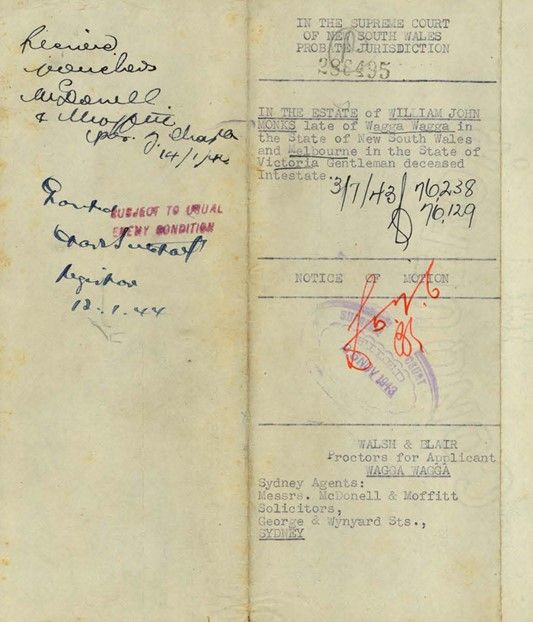 Received
vouchers
McDonell
& Moffitt
per J.
14/1/44
Granted
SUBJECT TO USUAL
ENEMY CONDITION
Registrar
18.1.44
IN THE SUPREME COURT
OF NEW SOUTH WALES
PROBATE JURISDICTION
286495
IN THE ESTATE of WILLIAM JOHN
MONKS late of Wagga Wagga in
the State of New South Wales
and Melbourne in the State of
Victoria Gentleman deceased
Intestate.
3/7/43/ 76238
76,129
NOTICE OF MOTION
SUPREME COURT
NOV 1943
WALSH & BLAIR
Proctors for Applicant
WAGGA WAGGA
Sydney Agents:
Messrs. McDonell & Moffitt
Solicitors,
George & Wynyard Sts.,
SYDNEY